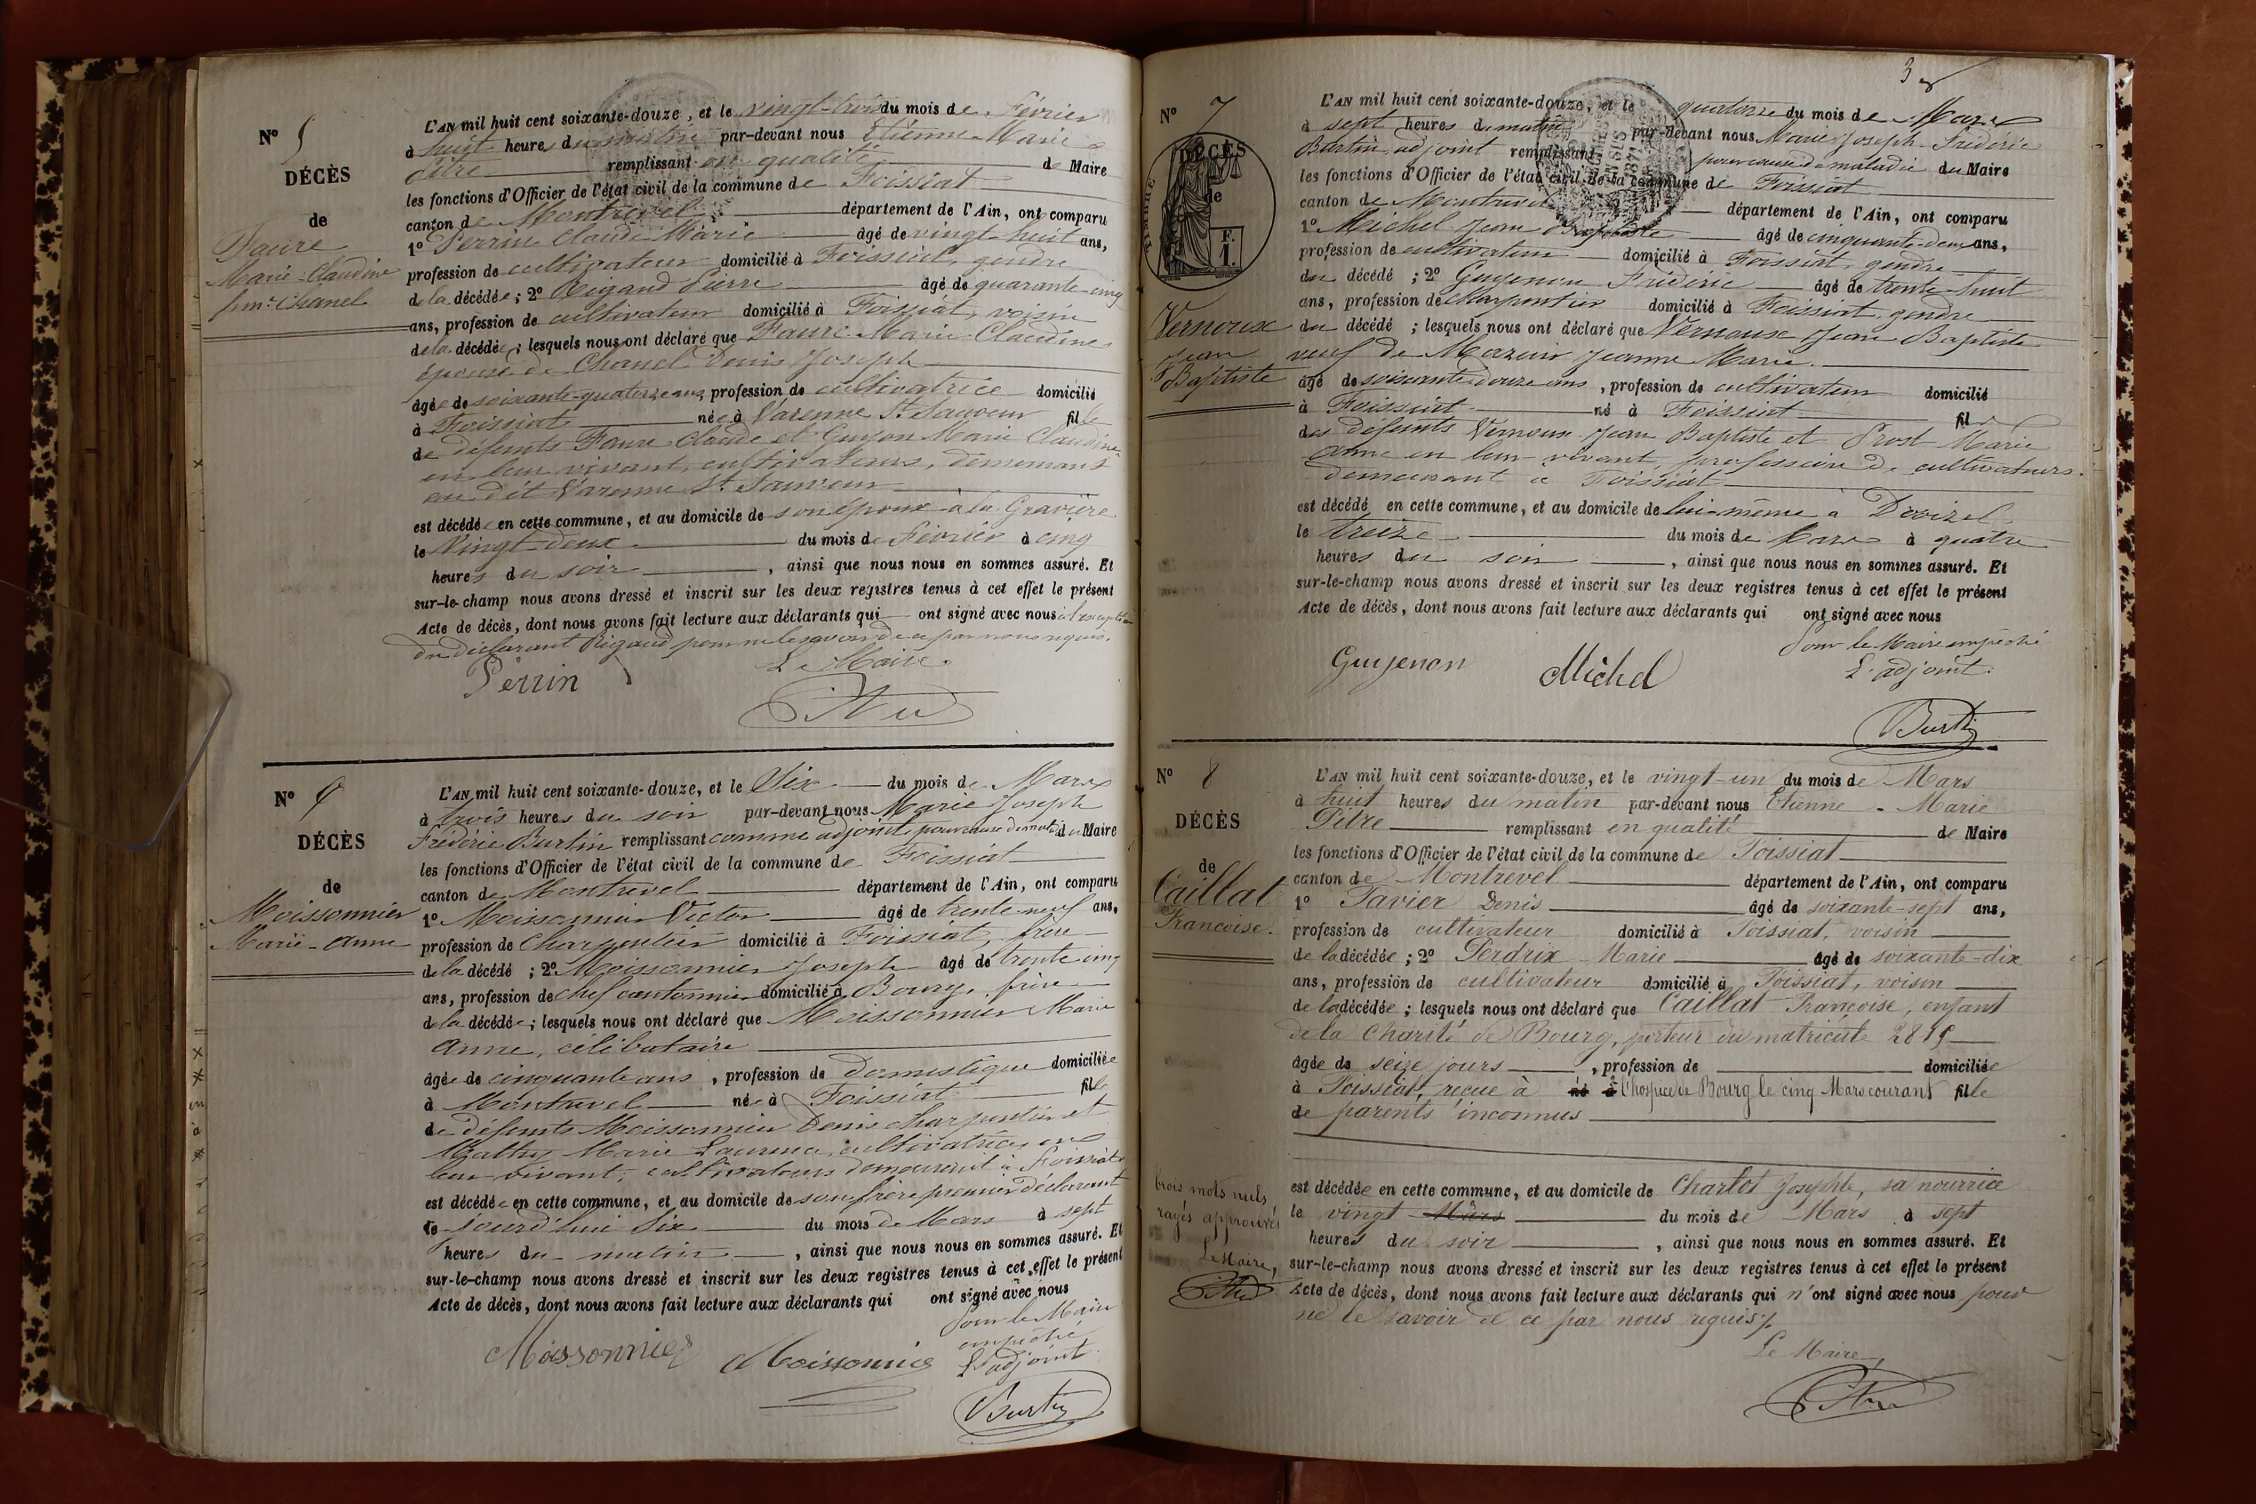 N° 5
DÉCÈS
de
Faure
Marie-Claudine
fme Chanel
L'AN mil huit cent soixante-douze, et le vingt-trois du mois de Février
à huit heures du matin par-devant nous Etienne-Marie
Pitre remplissant en qualité de Maire
les fonctions d'Officier de l'état civil de la commune de Foissiat
canton de Montrevel département de l'Ain, ont comparu
1° Perrin Claude Marie âgé de vingt-huit ans,
profession de cultivateur domicilié à Foissiat, gendre
de la décédée; 2° Rigaud Pierre âgé de quarante-cinq
ans, profession de cultivateur domicilié à Foissiat, voisin
de la décédée; lesquels nous ont déclaré que Faure Marie Claudine
épouse de Chanel Denis Joseph
âgée de soixante-quatorze ans, profession de cultivatrice domicilié
à Foissiat née à Varenne St Sauveur fille
de défunts Faure Claude et Guyon Marie Claudine
en leur vivant, cultivateurs, demeurant
au dit Varenne St Sauveur
est décédée en cette commune, et au domicile de son époux à la Gravière
le Vingt-deux du mois de Février à cinq
heures du soir, ainsi que nous nous en sommes assuré. Et
sur-le-champ nous avons dressé et inscrit sur les deux registres tenus à cet effet le présent
Acte de décès, dont nous avons fait lecture aux déclarants qui ont signé avec nous à l'exception
du déclarant Rigaud pour ne le savoir de ce par nous requis.
Perrin Le Maire.
N°
DÉCÈS
de
Moissonnier
Marie-Anne
L'AN mil huit cent soixante-douze, et le Six du mois de Mars
à trois heures du soir par-devant nous Marie Joseph
Frédéric Burtin remplissant comme adjoint pour cause de maladie du Maire
les fonctions d'Officier de l'état civil de la commune de Foissiat
canton de Montrevel département de l'Ain, ont comparu
1° Moissonnier Victor âgé de trente-neuf ans,
profession de Charpentier domicilié à Foissiat, frère
de la décédé; 2° Moissonnier Joseph âgé de trente cinq
ans, profession de chef cantonnier domicilié à Bourg, frère
de la décédée; lesquels nous ont déclaré que Moissonnier Marie
Anne, célibataire
âgée de cinquante ans, profession de domestique domiciliée
à Montrevel née à Foissiat fille
de défunts Moissonnier Denis charpentier et
Mathy Marie Laurence, cultivatrice en
leur vivant, cultivateurs demeurant à Foissiat
est décédée en cette commune, et au domicile de son frère premier déclarant
le jourd'hui Six du mois de Mars à sept
heures du matin, ainsi que nous nous en sommes assuré. Et
sur-le-champ nous avons dressé et inscrit sur les deux registres tenus à cet effet le présent
Acte de décès, dont nous avons fait lecture aux déclarants qui ont signé avec nous
Pour le Maire
empêché
L'adjoint
Moissonnier Moissonnier
Burtin
3
N° 7
DÉCÈS
de
Vernoux
Jean
Baptiste
L'AN mil huit cent soixante-douze, et le quatorze du mois de Mars
à sept heures du matin par-devant nous Marie Joseph Frédéric
Burtin adjoint remplissant pour cause de maladie du Maire
les fonctions d'Officier de l'état civil de la commune de Foissiat
canton de Montrevel département de l'Ain, ont comparu
1° Michel Jean Baptiste âgé de cinquante-deux ans,
profession de cultivateur domicilié à Foissiat, gendre
du décédé; 2° Guyenon Frédéric âgé de trente-huit
ans, profession de Charpentier domicilié à Foissiat, gendre
du décédé; lesquels nous ont déclaré que Vernoux Jean Baptiste
veuf de Mazuir Jeanne Marie
âgé de soixante douze ans, profession de cultivateur domicilié
à Foissiat né à Foissiat fils
des défunts Vernoux Jean Baptiste et Prost Marie
Anne en leur vivant, profession de cultivateurs
demeurant à Foissiat
est décédé en cette commune, et au domicile de lui-même à
le treize du mois de Mars à quatre
heures du soir, ainsi que nous nous en sommes assuré. Et
sur-le-champ nous avons dressé et inscrit sur les deux registres tenus à cet effet le présent
Acte de décès, dont nous avons fait lecture aux déclarants qui ont signé avec nous
Pour le Maire empêché
L'adjoint.
Guyenon Michel
Burtin
N° 8
DÉCÈS
de
Caillat
Francoise.
L'AN mil huit cent soixante-douze, et le vingt-un du mois de Mars
à huit heures du matin par-devant nous Etienne-Marie
Pitre remplissant en qualité de Maire
les fonctions d'Officier de l'état civil de la commune de Foissiat
canton de Montrevel département de l'Ain, ont comparu
1° Favier Denis âgé de soixante-sept ans,
profession de cultivateur domicilié à Foissiat, voisin
de la décédée; 2° Perdrix Marie âgé de soixante-dix
ans, profession de cultivateur domicilié à Foissiat, voisin
de la décédée; lesquels nous ont déclaré que Caillat Francoise, enfant
de la Charité de Bourg, porteur du matricule 2819
âgée de seize jours, profession de domiciliée
à Foissiat, reçue à né à l'hospice de Bourg le cinq Mars courant fille
de parents inconnus
est décédée en cette commune, et au domicile de Charlot Josephte, sa nourrice
le vingt Mars du mois de Mars à sept
heures du soir, ainsi que nous nous en sommes assuré. Et
sur-le-champ nous avons dressé et inscrit sur les deux registres tenus à cet effet le présent
Acte de décès, dont nous avons fait lecture aux déclarants qui n'ont signé avec nous pour
ne le savoir de ce par nous requis.
Le Maire,
trois mots nuls
rayés approuvés
Le Maire,